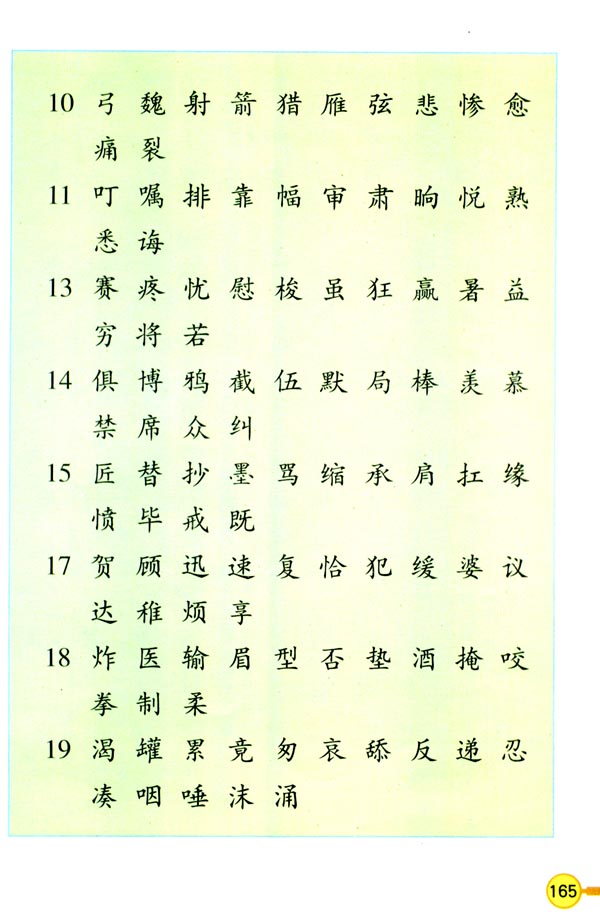 10 弓 魏 射 箭 猎 雁 弦 悲 惨 愈
痛 裂
11 叮 嘱 排 靠 幅 审 肃 晌 悦 熟
悉 诲
13 赛 疼 忧 慰 梭 虽 狂 赢 暑 益
穷 将 若
14 俱 博 鸦 截 伍 默 局 棒 羡 慕
禁 席 众 纠
15 匠 替 抄 墨 骂 缩 承 肩 扛 缘
愤 毕 戒 既
17 贺 顾 迅 速 复 恰 犯 缓 婆 议
达 稚 烦 享
18 炸 医 输 眉 型 否 垫 酒 掩 咬
拳 制 柔
19 渴 罐 累 竟 匆 哀 舔 反 递 忍
凑 咽 唾 沫 涌
165